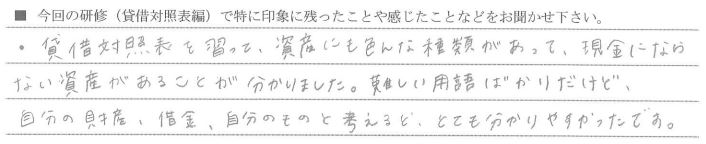 ■ 今回の研修（貸借対照表編）で特に印象に残ったことや感じたことなどをお聞かせ下さい。
・貸借対照表を習って、資産にも色んな種類があって、現金になら
ない資産があることが分かりました。難しい用語ばかりだけど、
自分の財産、借金、自分のものと考えると、とても分かりやすかったです。